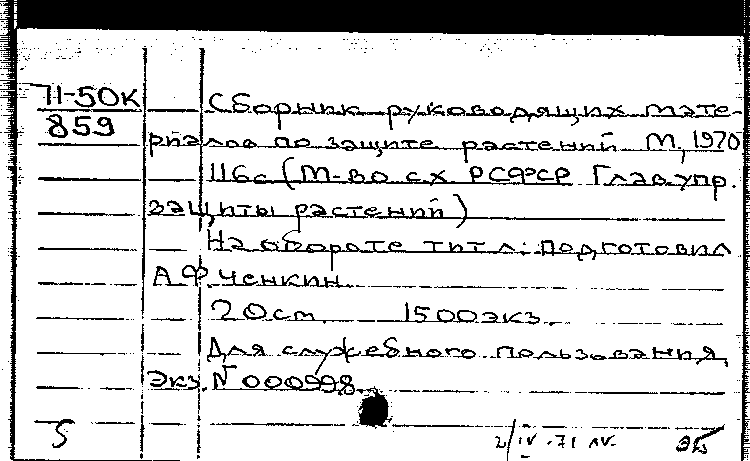 П-50к
859
Сборник руководящих мате-
риалов по защите растений М, 1970
116с (М-во с х РСФСР Глав. упр.
защиты растений)
На обороте тит л: подготовил
А Ф Ченкин
20см 1500экз.
Для служебного пользования,
Экз. N 000998
5 2/IV-71